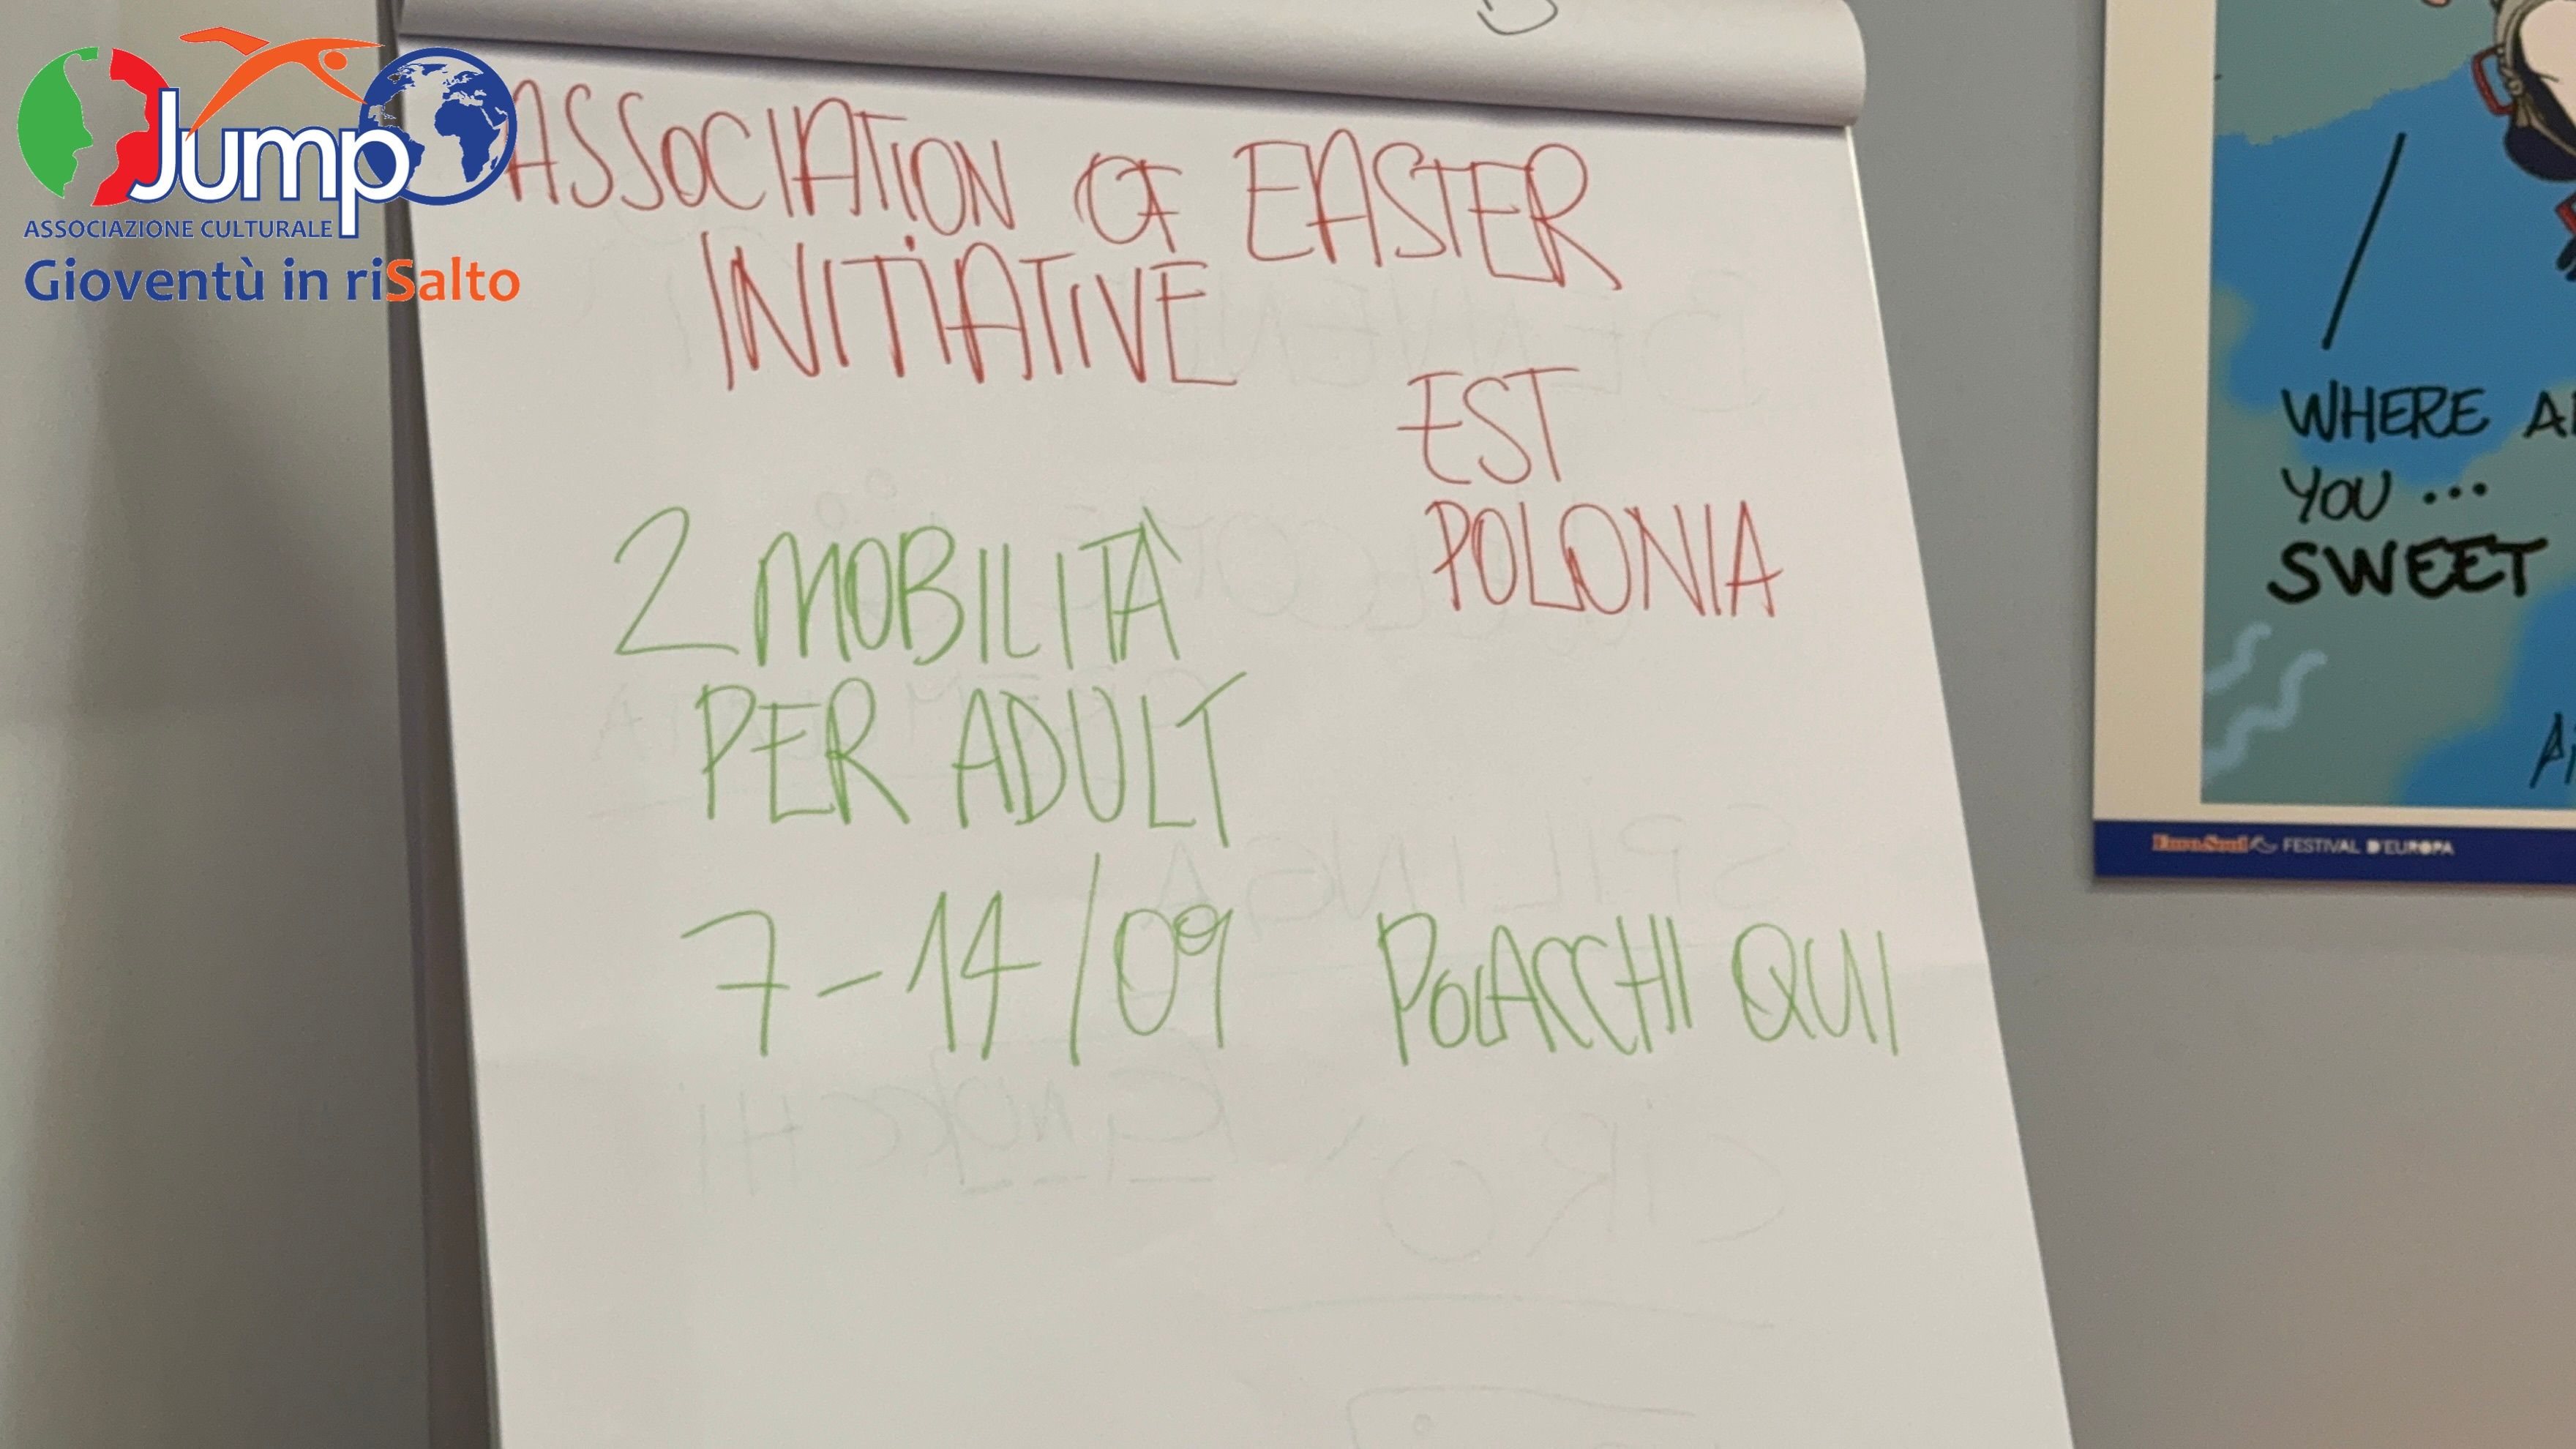 Jump
ASSOCIAZIONE CULTURALE
Gioventù in riSalto
ASSOCIATION OF EASTER
INITIATIVE
EST
POLONIA
2 MOBILITÀ
PER ADULT
7-14/09 POLACCHI QUI
WHERE
YOU ...
SWEET
EuroSoul FESTIVAL D'EUROPA